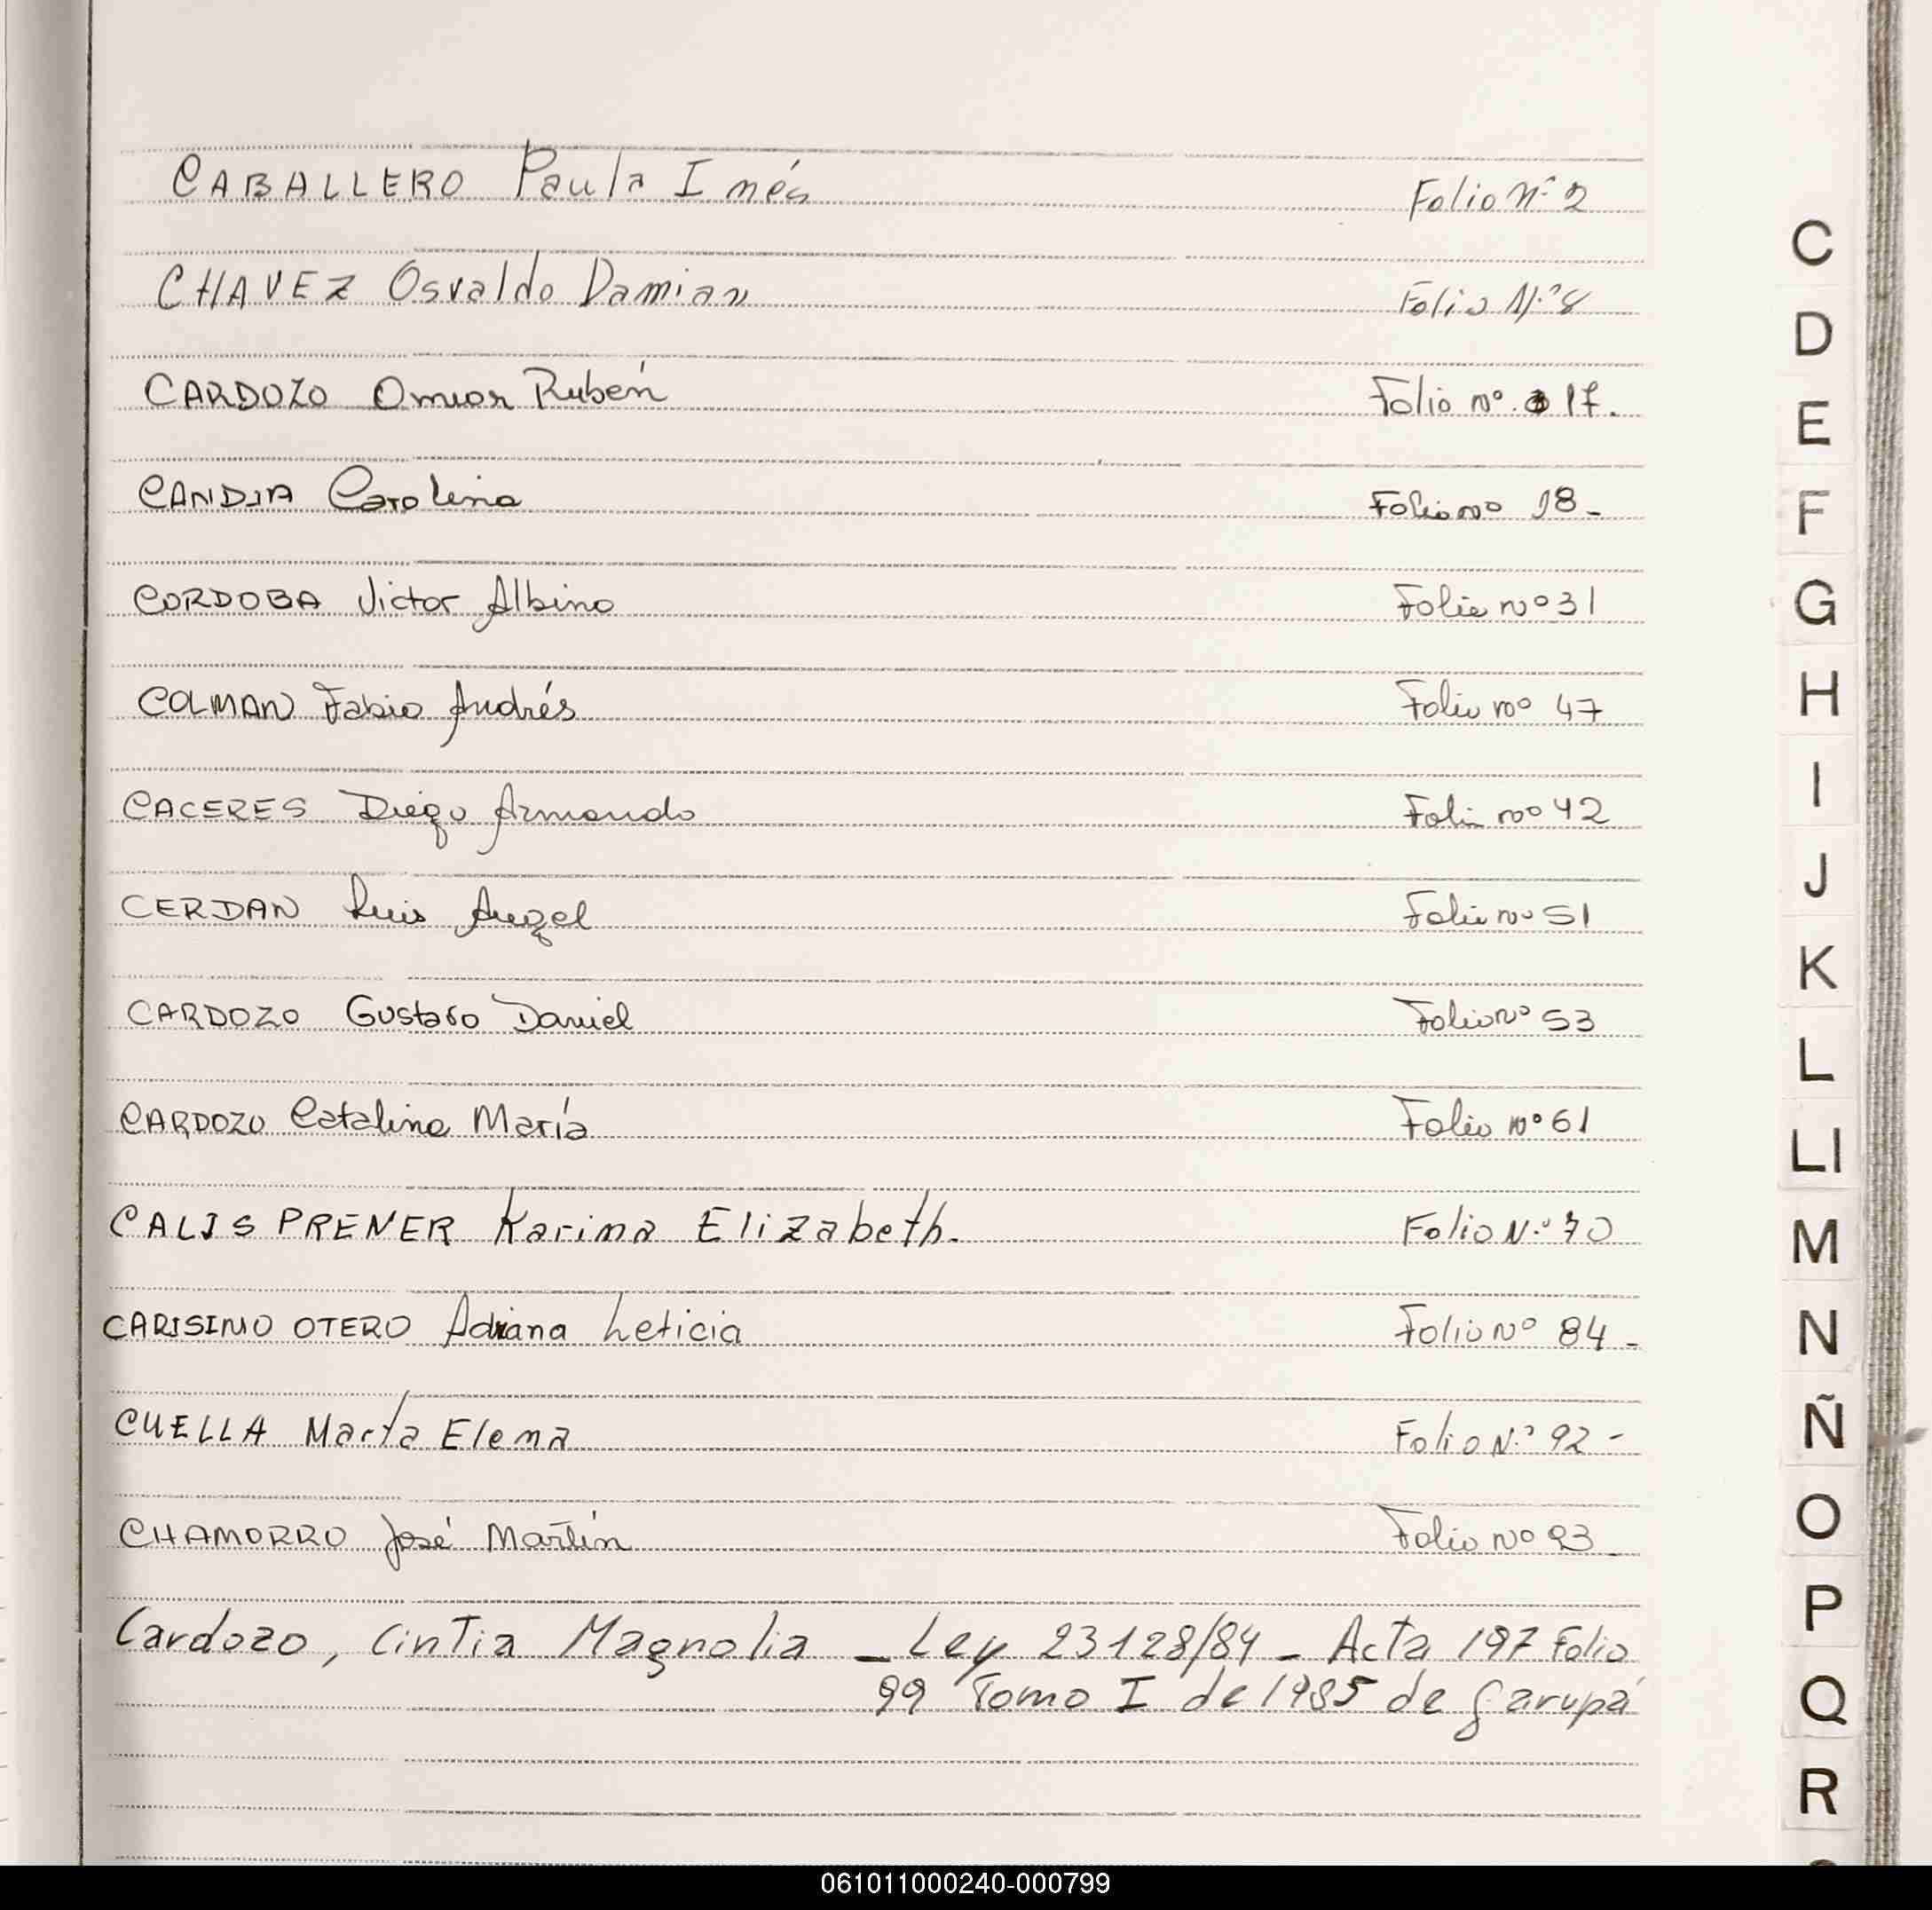 CABALLERO Paula Inés Folio Nº 2
CHAVEZ Osvaldo Damian Folio Nº 8
CARDOZO Omar Rubén Folio nº 17.
CANDIA Carolina Folio nº 18-
CORDOBA Victor Albino Folio nº 31
COLMAN Fabio Andrés Folio nº 47
CACERES Diego Armando Folio nº 42
CERDAN Luis Angel Folio nº 51
CARDOZO Gustavo Daniel Folio nº 53
CARDOZO Catalina María Folio nº 61
CALIS PRENER Karina Elizabeth. Folio Nº 70
CARISIMO OTERO Adriana Leticia Folio Nº 84-
CUELLA Marta Elena Folio Nº 92-
CHAMORRO José Martín Folio nº 93
Cardozo, Cintia Magnolia - Ley 23128/84 - Acta 197 Folio
99 Tomo I de 1985 de Garupá
C
D
E
F
G
H
I
J
K
L
Ll
M
N
Ñ
O
P
Q
R
061011000240-000799